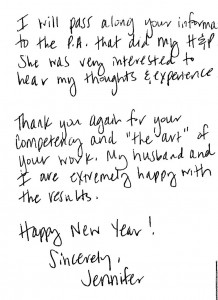 I will pass along your informa
to the P.A. that did my H&P
She was very interested to
hear my thoughts & experience
Thank you again for your
competency and "the art" of
your work. My husband and
I are extremely happy with
the results.
Happy New Year!
Sincerely,
Jennifer